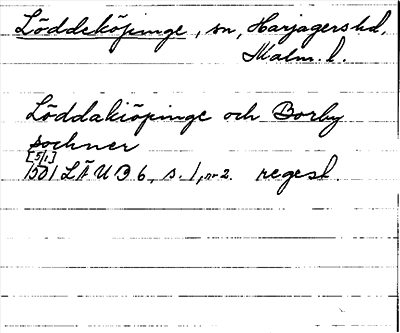 Löddeköpinge, sn, Harjagers hd,
Malm. l.
Löddakiöpinge och Borby
sochner
[5/1]
1501 LÄUB 6, s. 1, nr 2. regest.